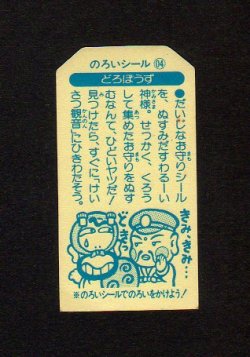 のろいシール 04
どろぼうず
●だいじなお守りシール
を、ぬすみだすわるーい
神様。せっかく、くろう
して集めたお守りをぬす
むなんて、ひどいヤツだ！
見つけたら、すぐに「けい
さつ観音」にひきわたそう。
きみ、きみ…
どきっ
※のろいシールでのろいをかけよう！